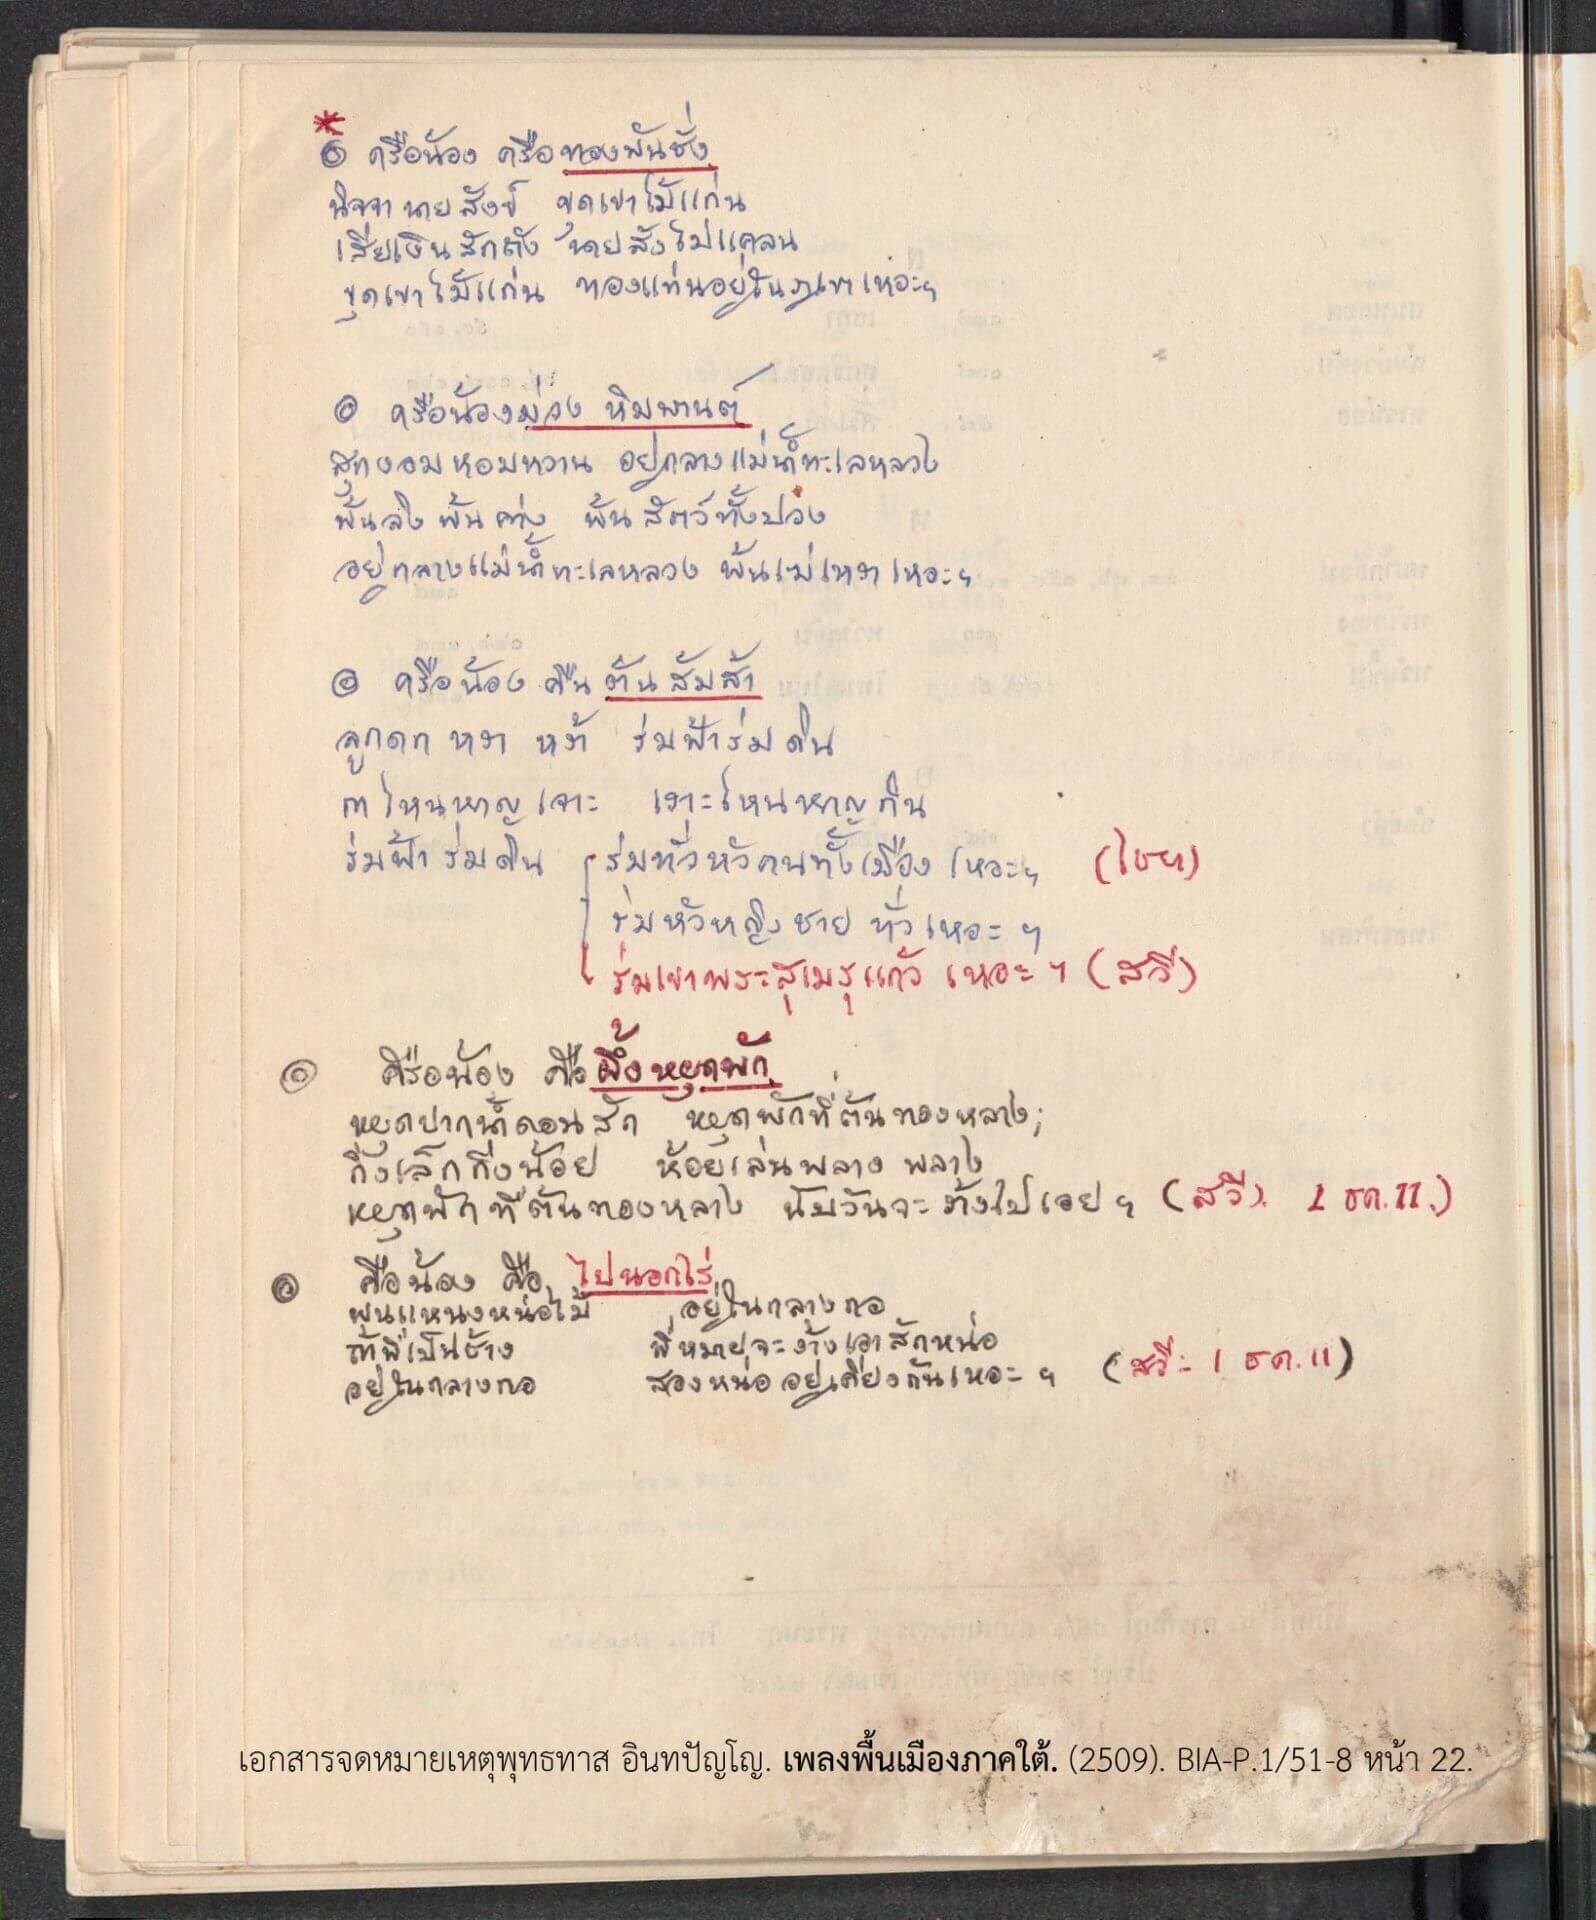 * ๏ ครือน้อง ครือทองพันชั่ง
นิจจา นายสังข์ ขุดเขาไม้แก่น
เสียเงินสักถัง นายสังไม่แคลน
ขุดเขาไม้แก่น ทองแท่นอยู่ในภูเขาเหอะฯ
๏ ครือน้องม่วง หิมพานต์
สุกงอมหอมหวาน อยู่กลางแม่น้ำทะเลหลวง
พ้นลิง พ้นค่าง พ้นสัตว์ทั้งปวง
อยู่กลางแม่น้ำทะเลหลวง พ้น เหอะฯ
๏ ครือน้อง คืน ต้นส้มส้า
ลูกดก หงา หง้า ร่มฟ้าร่มดิน
กาไหนหาญเจาะ เงาะไหนหาญกิน
ร่มฟ้า ร่มดิน ร่มทั่วหัวคนทั้งเมือง เหอะฯ (ไชยา)
ร่มหัวหญิงชาย ทั่วเหอะ ฯ
ร่มเขาพระสุเมรุแก้ว เหอะ ฯ (สวี)
๏ ครือน้อง คือผึ้งหยุดพัก
หยุดปากน้ำดอนสัก หยุดพักที่ต้นทองหลาง;
กิ่งเล็กกิ่งน้อย ห้อยเล่นพลาง พลาง
หยุดพักที่ต้นทองหลาง นับวันจะร้างไปเอย ฯ (สวี). 1 ธค. 11.)
๏ คือน้อง คือ ไปนอกไร่
พูนแหนงหน่อไม้ อยู่ในกลางกอ
ถ้าพี่เป็นช้าง พี่หมายจะง้างเอาสักหน่อ
อยู่ในกลางกอ สองหน่ออยู่เคียงกันเหอะ ฯ (สวี- 1 ธค. 11)
เอกสารจดหมายเหตุพุทธทาส อินทปัญโญ. เพลงพื้นเมืองภาคใต้. (2509). BIA-P.1/51-8 หน้า 22.